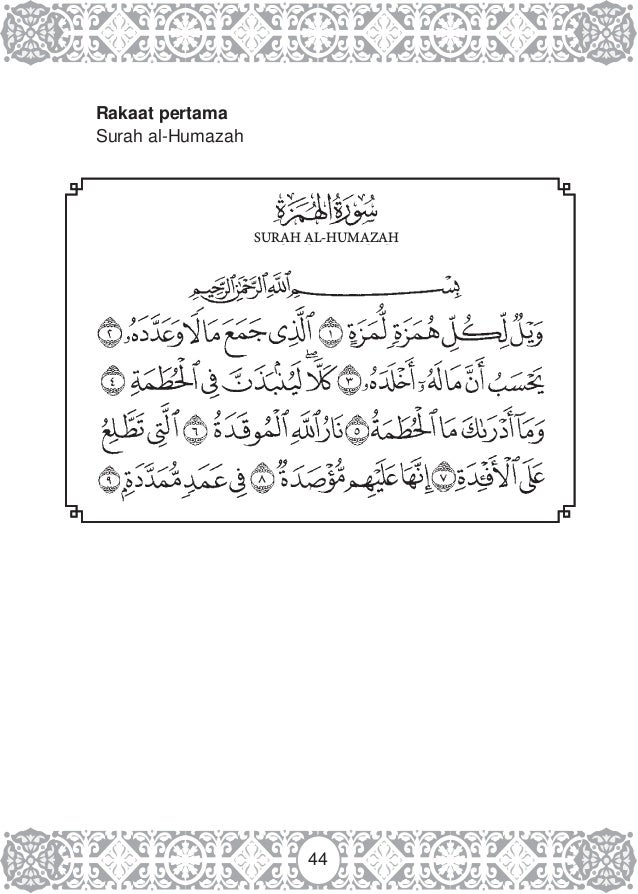 Rakaat pertama
Surah al-Humazah
سُورَةُ الْهُمَزَةِ
SURAH AL-HUMAZAH
بِسْمِ ٱللَّهِ ٱلرَّحْمَٰنِ ٱلرَّحِيمِ
وَيْلٌ لِّكُلِّ هُمَزَةٍ لُّمَزَةٍ ١ ٱلَّذِى جَمَعَ مَالًا وَعَدَّدَهُۥ ٢
يَحْسَبُ أَنَّ مَالَهُۥٓ أَخْلَدَهُۥ ٣ كَلَّا ۖ لَيُنۢبَذَنَّ فِى ٱلْحُطَمَةِ ٤
وَمَآ أَدْرَىٰكَ مَا ٱلْحُطَمَةُ ٥ نَارُ ٱللَّهِ ٱلْمُوقَدَةُ ٦ ٱلَّتِى تَطَّلِعُ
عَلَى ٱلْأَفْـِٔدَةِ ٧ إِنَّهَا عَلَيْهِم مُّؤْصَدَةٌ ٨ فِى عَمَدٍ مُّمَدَّدَةٍۭ ٩
44